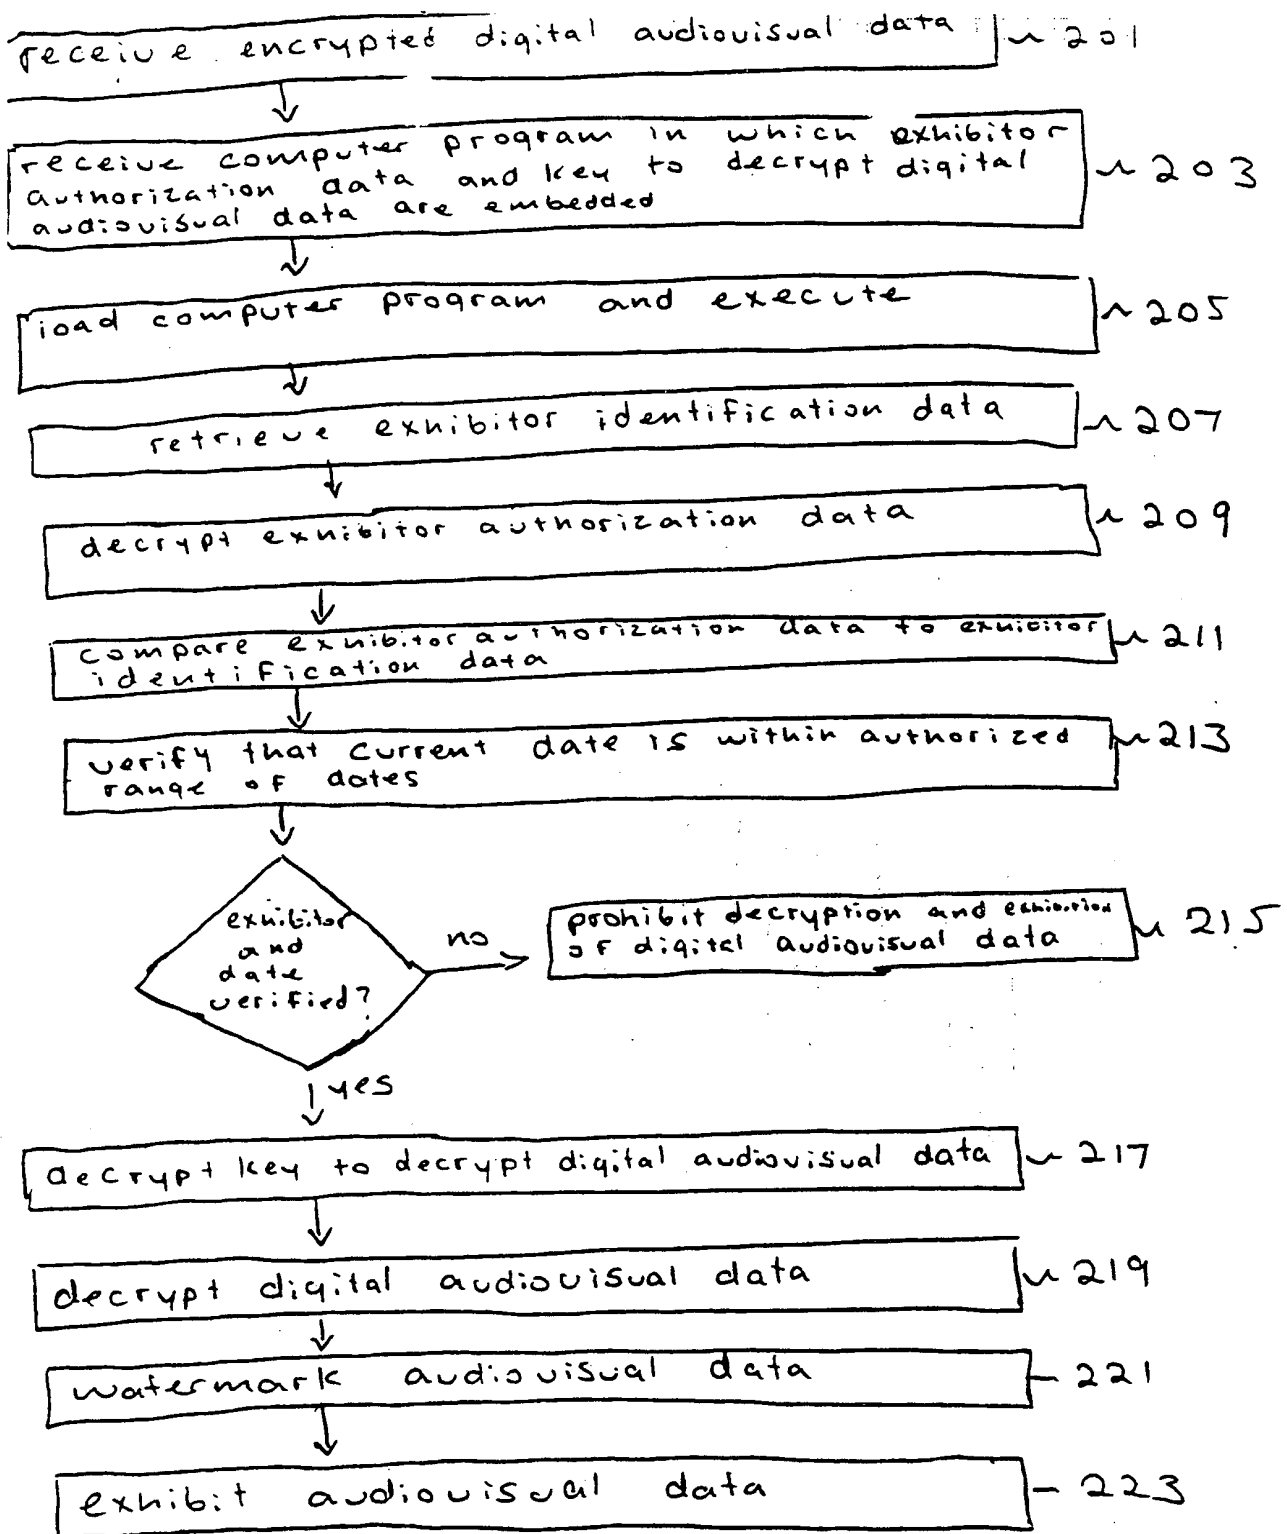 receive encrypted digital audiovisual data 201
receive computer program in which exhibitor
authorization data and key to decrypt digital 203
audiovisual data are embedded
load computer program and execute 205
retrieve exhibitor identification data 207
decrypt exhibitor authorization data 209
compare exhibitor authorization data to exhibitor 211
identification data
verify that current date is within authorized 213
range of dates
exhibitor
and
date
verified?
no
prohibit decryption and exhibition 215
of digital audiovisual data
yes
decrypt key to decrypt digital audiovisual data 217
decrypt digital audiovisual data 219
watermark audiovisual data 221
exhibit audiovisual data 223